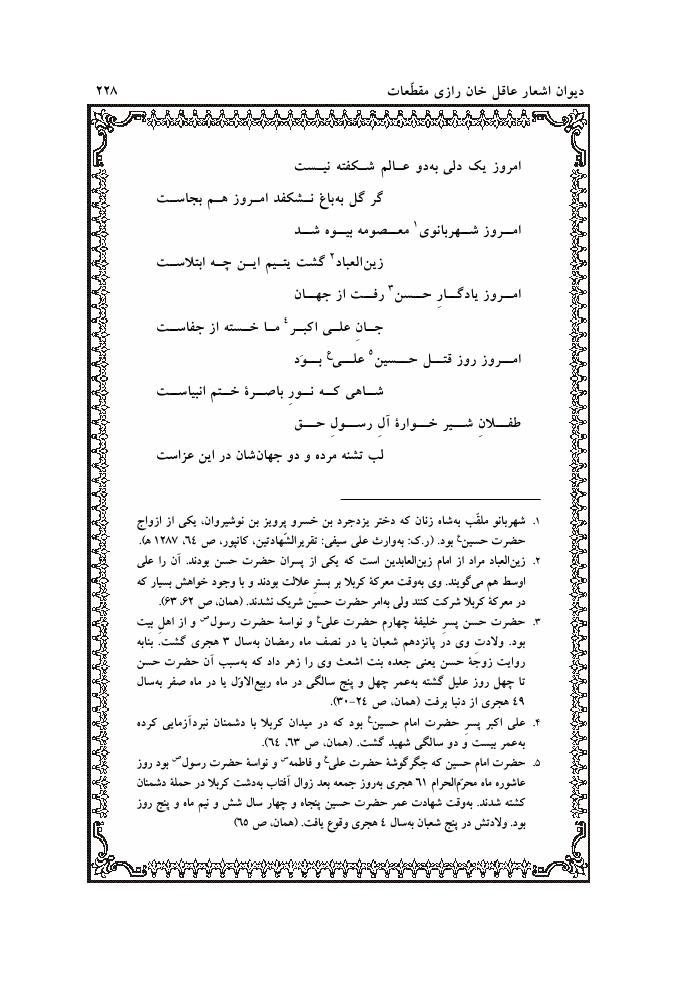 دیوان اشعار عاقل خان رازی مقطّعات ۲۲۸
امروز یک دلی به‌دو عـالم شـکفته نیـست
گر گل به‌باغ نـشکفد امـروز هـم بجاسـت
امـروز شـهربانوی۱ معـصومه بیـوه شـد
زین‌العباد۲ گشت یتـیم ایـن چـه ابتلاسـت
امـروز یادگـارِ حـسن۳ رفـت از جهـان
جـانِ علـی اکبـر۴ مـا خـسته از جفاسـت
امـروز روز قتـل حـسین۵ علـیع بـوَد
شـاهی کـه نـورِ باصـرهٔ خـتم انبیاسـت
طفـلانِ شـیر خـوارهٔ آلِ رسـولِ حـق
لب تشنه مرده و دو جهان‌شان در این عزاست
۱. شهربانو ملقّب به‌شاه زنان که دختر یزدجرد بن خسرو پرویز بن نوشیروان، یکی از ازواج
حضرت حسینع بود. (ر.ک: به‌وارث علی سیفی: تقریرالشّهادتین، کانپور، ص ٦٤، ۱۲۸۷ ه‍).
۲. زین‌العباد مراد از امام زین‌العابدین است که یکی از پسران حضرت حسن بودند. آن را علی
اوسط هم می‌گویند. وی به‌وقت معرکهٔ کربلا بر بسترِ علالت بودند و با وجود خواهش بسیار که
در معرکهٔ کربلا شرکت کنند ولی به‌امر حضرت حسین شریک نشدند. (همان، ص ٦۲، ٦۳).
۳. حضرت حسن پسرِ خلیفهٔ چهارم حضرت علیع و نواسهٔ حضرت رسولص و از اهلِ بیت
بود. ولادتِ وی در پانزدهم شعبان یا در نصف ماه رمضان به‌سال ۳ هجری گشت. بنابه
روایت زوجهٔ حسن یعنی جعده بنت اشعث وی را زهر داد که به‌سبب آن حضرت حسن
تا چهل روز علیل گشته به‌عمر چهل و پنج سالگی در ماه ربیع‌الاوّل یا در ماه صفر به‌سال
٤۹ هجری از دنیا برفت (همان، ص ۲٤-۳۰).
۴. علی اکبر پسرِ حضرت امام حسینع بود که در میدان کربلا با دشمنان نبردآزمایی کرده
به‌عمر بیست و دو سالگی شهید گشت. (همان، ص ٦۳، ٦٤).
۵. حضرت امام حسین که جگرگوشهٔ حضرت علیع و فاطمهس و نواسهٔ حضرت رسولص بود روز
عاشوره ماه محرّم‌الحرام ٦۱ هجری به‌روز جمعه بعد زوال آفتاب به‌دشت کربلا در حملهٔ دشمنان
کشته شدند. به‌وقت شهادت عمر حضرت حسین پنجاه و چهار سال شش و نیم ماه و پنج روز
بود. ولادتش در پنج شعبان به‌سال ٤ هجری وقوع یافت. (همان، ص ٦۵)